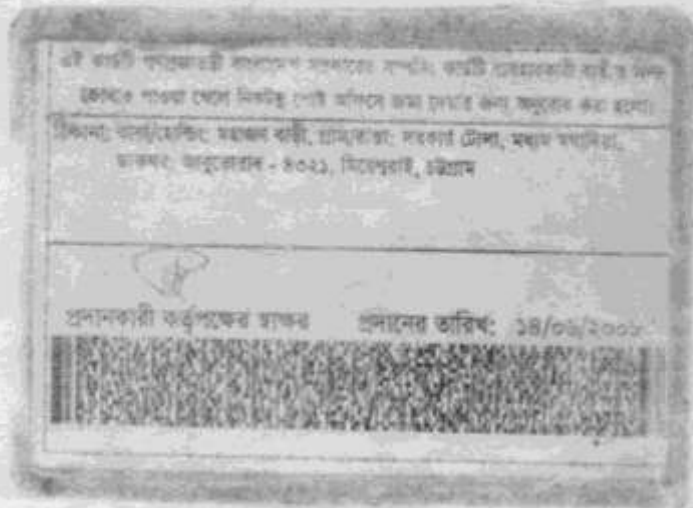 এই কার্ডটি গণপ্রজাতন্ত্রী বাংলাদেশ সরকারের সম্পত্তি। কার্ডটি ব্যবহারকারী ব্যতীত অন্য
কোথাও পাওয়া গেলে নিকটস্থ পোষ্ট অফিসে জমা দেবার জন্য অনুরোধ করা হলো।
ঠিকানা: বাসা/হোল্ডিং: মহাজন বাড়ী, গ্রাম/রাস্তা: সরকার টোলা, মধ্যম
ডাকঘর: আবুতোরাব - ৪৩২১, মিরেশ্বরাই, চট্টগ্রাম
প্রদানকারী কর্তৃপক্ষের স্বাক্ষর প্রদানের তারিখ: ১৪/০৬/২০০৮